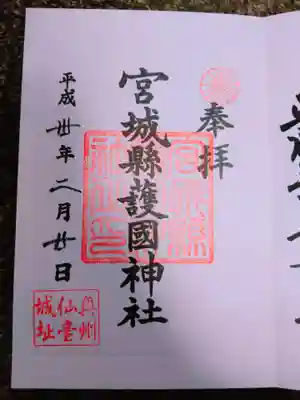 奉拝
宮城縣護國神社
平成卅年二月廿日
奥州
仙臺
城址